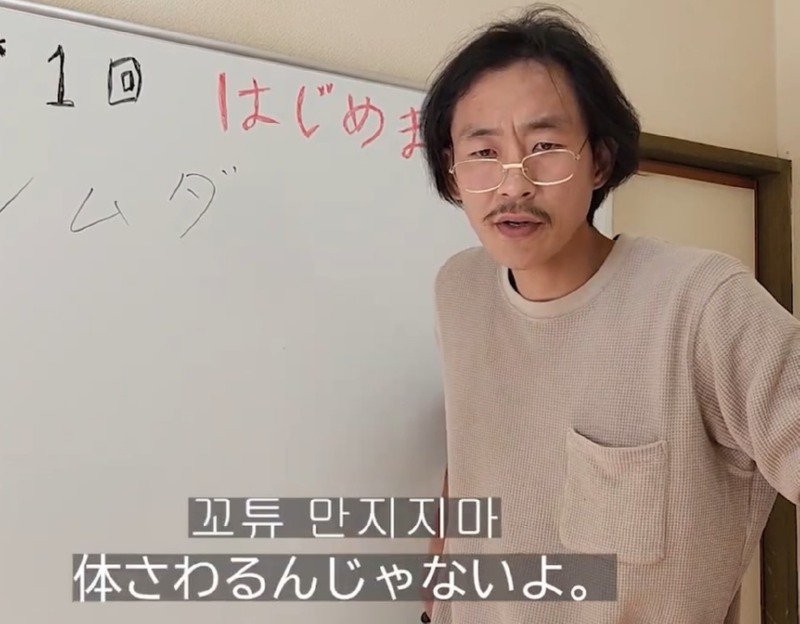 1回 はじめま
ムダ
꼬튜 만지지마
体さわるんじゃないよ。